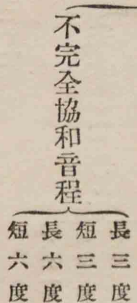 不完全協和音程
長三度
短三度
長六度
短六度